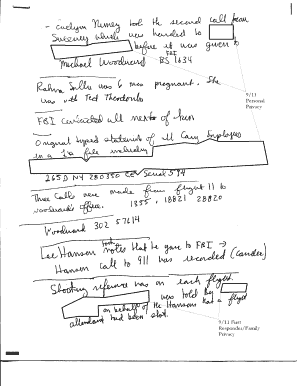 - Evelyn Nunez took the second call from
Sweeney which was handed to
before it was given to
Michael Woodward FBI BS 1634
Rahma Salie was 6 mos pregnant. She
was with Ted Theodoridis
9/11
Personal
Privacy
FBI contacted all
Original typed statements of 11 Employees
in a 1A file including
265D NY 280350 Serial 594
Three calls were made from flight 11 to
Woodward's office. 1855, 18821 28820
Woodward 302 57614
Lee Hanson notes that he gave to FBI →
Hanson call to 911 was recorded
Shooting reference was on each flight.
was told by
on behalf of the Hansons had a flight
attendant had been shot.
9/11 First
Responder/Family
Privacy